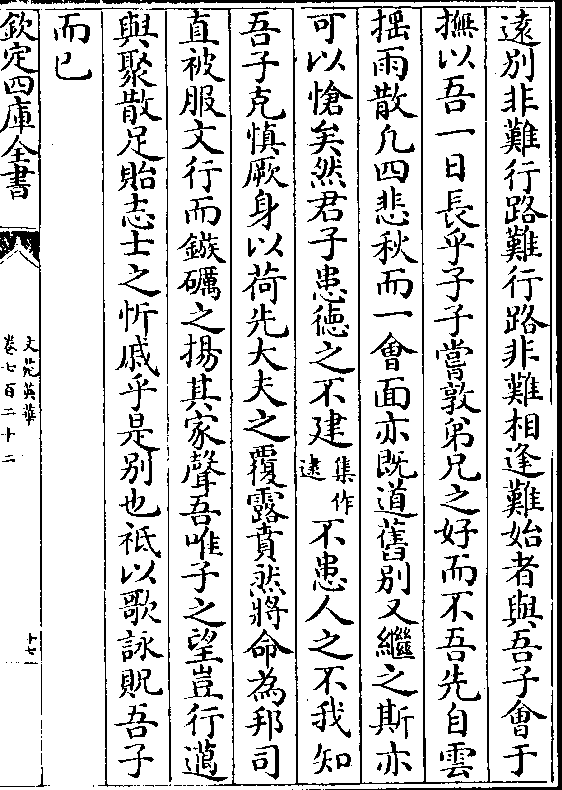 遠别非難行路難行路非難相逢難始者與吾子會于
撫以吾一日長乎子子嘗敦弟兄之好而不吾先自雲
揺雨散凢四悲秋而一會面亦既道舊别又繼之斯亦
可以愴矣然君子患徳之不建集作逮不患人之不我知
吾子克慎厥身以荷先大夫之覆露賁然將命為邦司
直被服文行而鏃礪之揚其家聲吾唯子之望豈行邁
與聚散足貽志士之忻戚乎是别也祗以歌詠貺吾子
而已
欽定四庫全書
文苑英華
卷七百二十二
十七